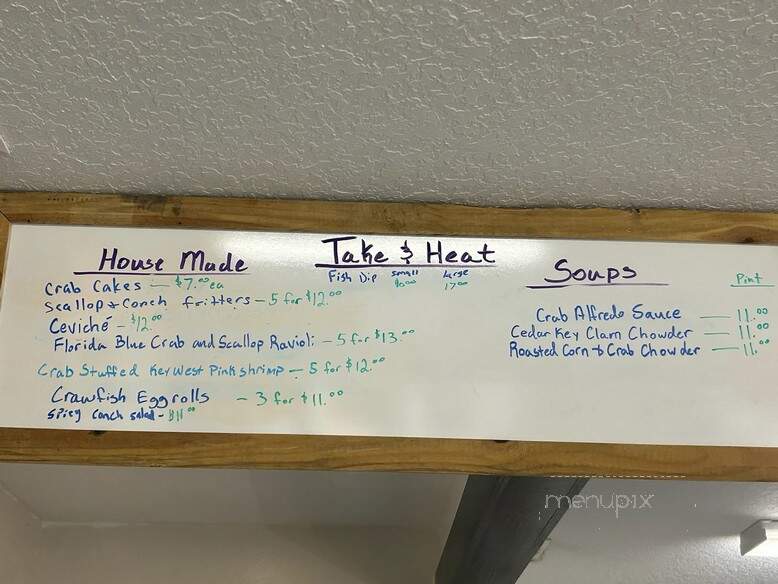 House Made
Take & Heat
Crab Cakes — $7.00 ea
Scallop & Conch fritters — 5 for $12.00
Ceviché — $12.00
Florida Blue Crab and Scallop Ravioli — 5 for $13.00
Crab Stuffed Key West Pink shrimp — 5 for $12.00
Crawfish Eggrolls — 3 for $11.00
Spicy Conch salad - $11.00
Fish Dip small large
17.00
Soups
Pint
Crab Alfredo Sauce — 11.00
Cedar Key Clam Chowder — 11.00
Roasted Corn & Crab Chowder — 11.00
menupix